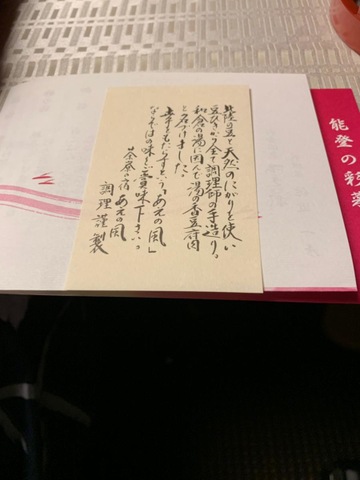 能登の
北陸の豆と天然のにがりを使い
豆ひきから全て調理師の手造り。
和倉の湯に因んで湯の香豆腐
と名づけました。
幸をもたらすという「あえの風」
ならではの味をご賞味下さい。
茶寮の宿 あえの風
調理謹製